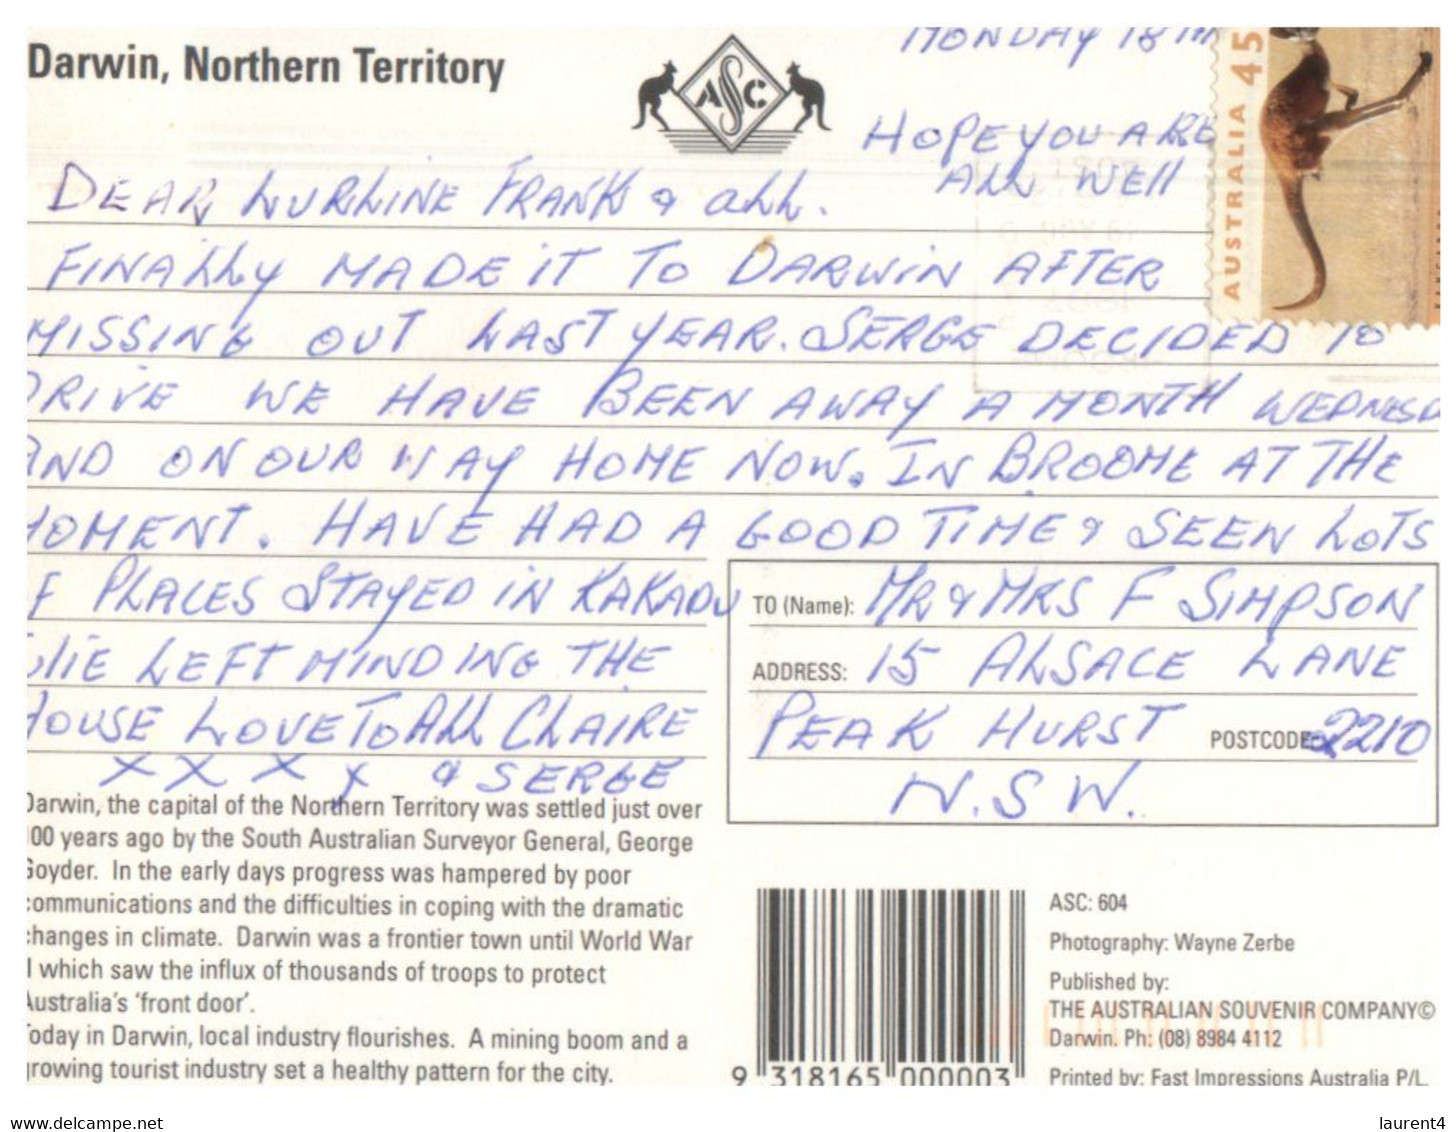 Darwin, Northern Territory
ASC
MONDAY 18
AUSTRALIA 45
HOPE YOU ARE
ALL WELL
DEAR LURLINE FRANK & ALL.
FINALLY MADE IT TO DARWIN AFTER
MISSING OUT LAST YEAR. SERGE DECIDED TO
DRIVE WE HAVE BEEN AWAY A MONTH WEDNESD
AND ON OUR WAY HOME NOW. IN BROOME AT THE
MOMENT. HAVE HAD A GOOD TIME & SEEN LOTS
OF PLACES STAYED IN KAKADU
LEFT MINDING THE
HOUSE LOVE TO ALL CLAIRE
X X X X & SERGE
TO (Name): MR & MRS F SIMPSON
ADDRESS: 15 ALSACE LANE
PEAK HURST POSTCODE: 2210
N.S.W.
Darwin, the capital of the Northern Territory was settled just over
100 years ago by the South Australian Surveyor General, George
Goyder. In the early days progress was hampered by poor
communications and the difficulties in coping with the dramatic
changes in climate. Darwin was a frontier town until World War
II which saw the influx of thousands of troops to protect
Australia's 'front door'.
Today in Darwin, local industry flourishes. A mining boom and a
growing tourist industry set a healthy pattern for the city.
9 318165 000003
ASC: 604
Photography: Wayne Zerbe
Published by:
THE AUSTRALIAN SOUVENIR COMPANY©
Darwin. Ph: (08) 8984 4112
Printed by: Fast Impressions Australia P/L.
www.delcampe.net
laurent4